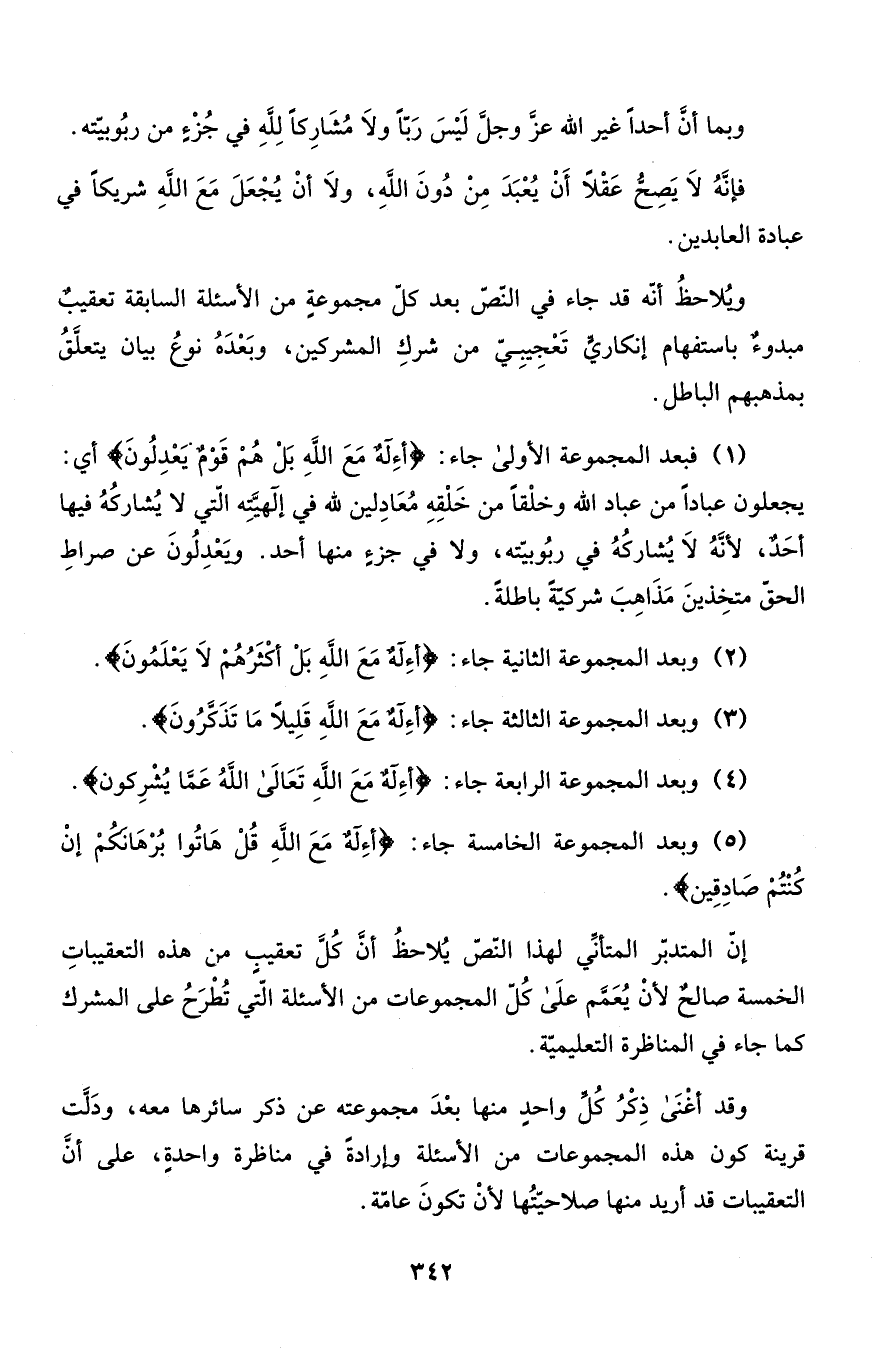 وبما أنَّ أحداً غير الله عزَّ وجلَّ لَيْسَ رَبّاً ولاَ مُشَارِكاً لِلَّهِ في جُزْءٍ من ربُوبيّته.
فإنَّهُ لاَ يَصِحُّ عَقْلاً أَنْ يُعْبَدَ مِنْ دُونَ اللَّهِ، ولاَ أنْ يُجْعَلَ مَعَ اللَّهِ شريكاً في
عبادة العابدين.
ويُلاحظُ أنّه قد جاء في النّصّ بعد كلّ مجموعةٍ من الأسئلة السابقة تعقيبٌ
مبدوءٌ باستفهام إنكاريٍّ تَعْجِيبِيّ من شركِ المشركين، وبَعْدَهُ نوعُ بيان يتعلَّقُ
بمذهبهم الباطل.
(١) فبعد المجموعة الأولىٰ جاء: ﴿أءِلَهٌ مَعَ اللَّهِ بَلْ هُمْ قَوْمٌ يَعْدِلُونَ﴾ أي:
يجعلون عباداً من عباد الله وخلْقاً من خَلْقِهِ مُعَادِلين لله في إلَهيَّتِه الّتي لا يُشاركُهُ فيها
أحَدٌ، لأنَّهُ لاَ يُشاركُهُ في ربُوبيّته، ولا في جزءٍ منها أحد. ويَعْدِلُونَ عن صراطِ
الحقّ متخِذينَ مَذَاهِبَ شركيّةً باطلةً.
(٢) وبعد المجموعة الثانية جاء: ﴿أءِلَهٌ مَعَ اللَّهِ بَلْ أكْثَرُهُمْ لاَ يَعْلَمُونَ﴾.
(٣) وبعد المجموعة الثالثة جاء: ﴿أءِلَهٌ مَعَ اللَّهِ قَلِيلاً مَا تَذَكَّرُونَ﴾.
(٤) وبعد المجموعة الرابعة جاء: ﴿أءِلَهٌ مَعَ اللَّهِ تَعَالَىٰ اللَّهُ عَمَّا يُشْرِكون﴾.
(٥) وبعد المجموعة الخامسة جاء: ﴿أءِلَهٌ مَعَ اللَّهِ قُلْ هَاتُوا بُرْهَانَكُمْ إنْ
كُنْتُمْ صَادِقِين﴾.
إنّ المتدبّر المتأنِّي لهذا النّصّ يُلاحظُ أنَّ كُلَّ تعقيبٍ من هذه التعقيباتِ
الخمسة صالحٌ لأنْ يُعَمَّم علَىٰ كُلّ المجموعات من الأسئلة الّتي تُطْرَحُ على المشرك
كما جاء في المناظرة التعليميّة.
وقد أغْنَىٰ ذِكْرُ كُلِّ واحدٍ منها بعْدَ مجموعته عن ذكر سائرها معه، ودَلَّت
قرينة كون هذه المجموعات من الأسئلة وإرادةً في مناظرة واحدةٍ، على أنَّ
التعقيبات قد أريد منها صلاحيّتُها لأنْ تكونَ عامّة.
٣٤٢